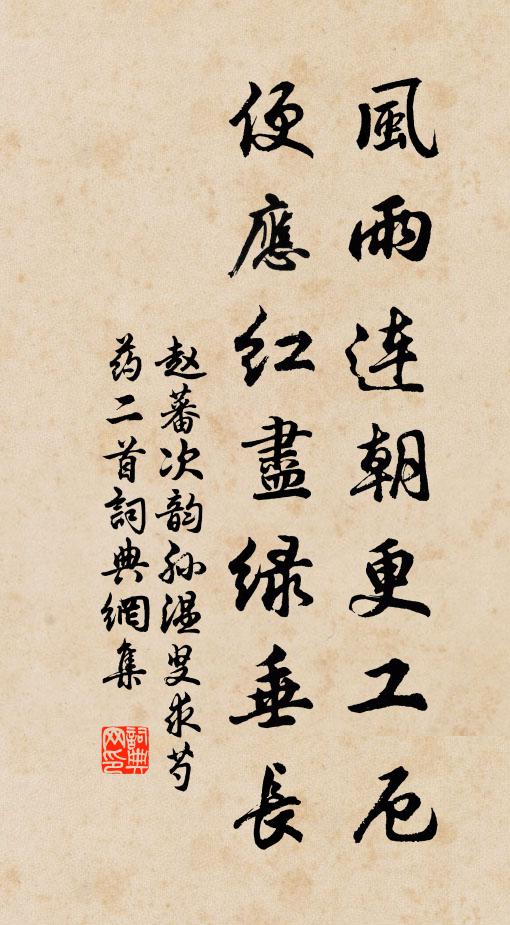 風雨連朝更工厄
便應紅盡綠垂長
赵蕃次韵孙温叟求芍
药二首詞典網集
詞典網印